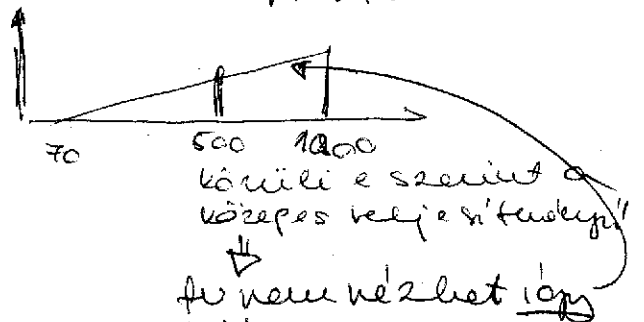 70 500 1000
körüli e szerint a
közepes teljesítményű
Ez nem nézhet így